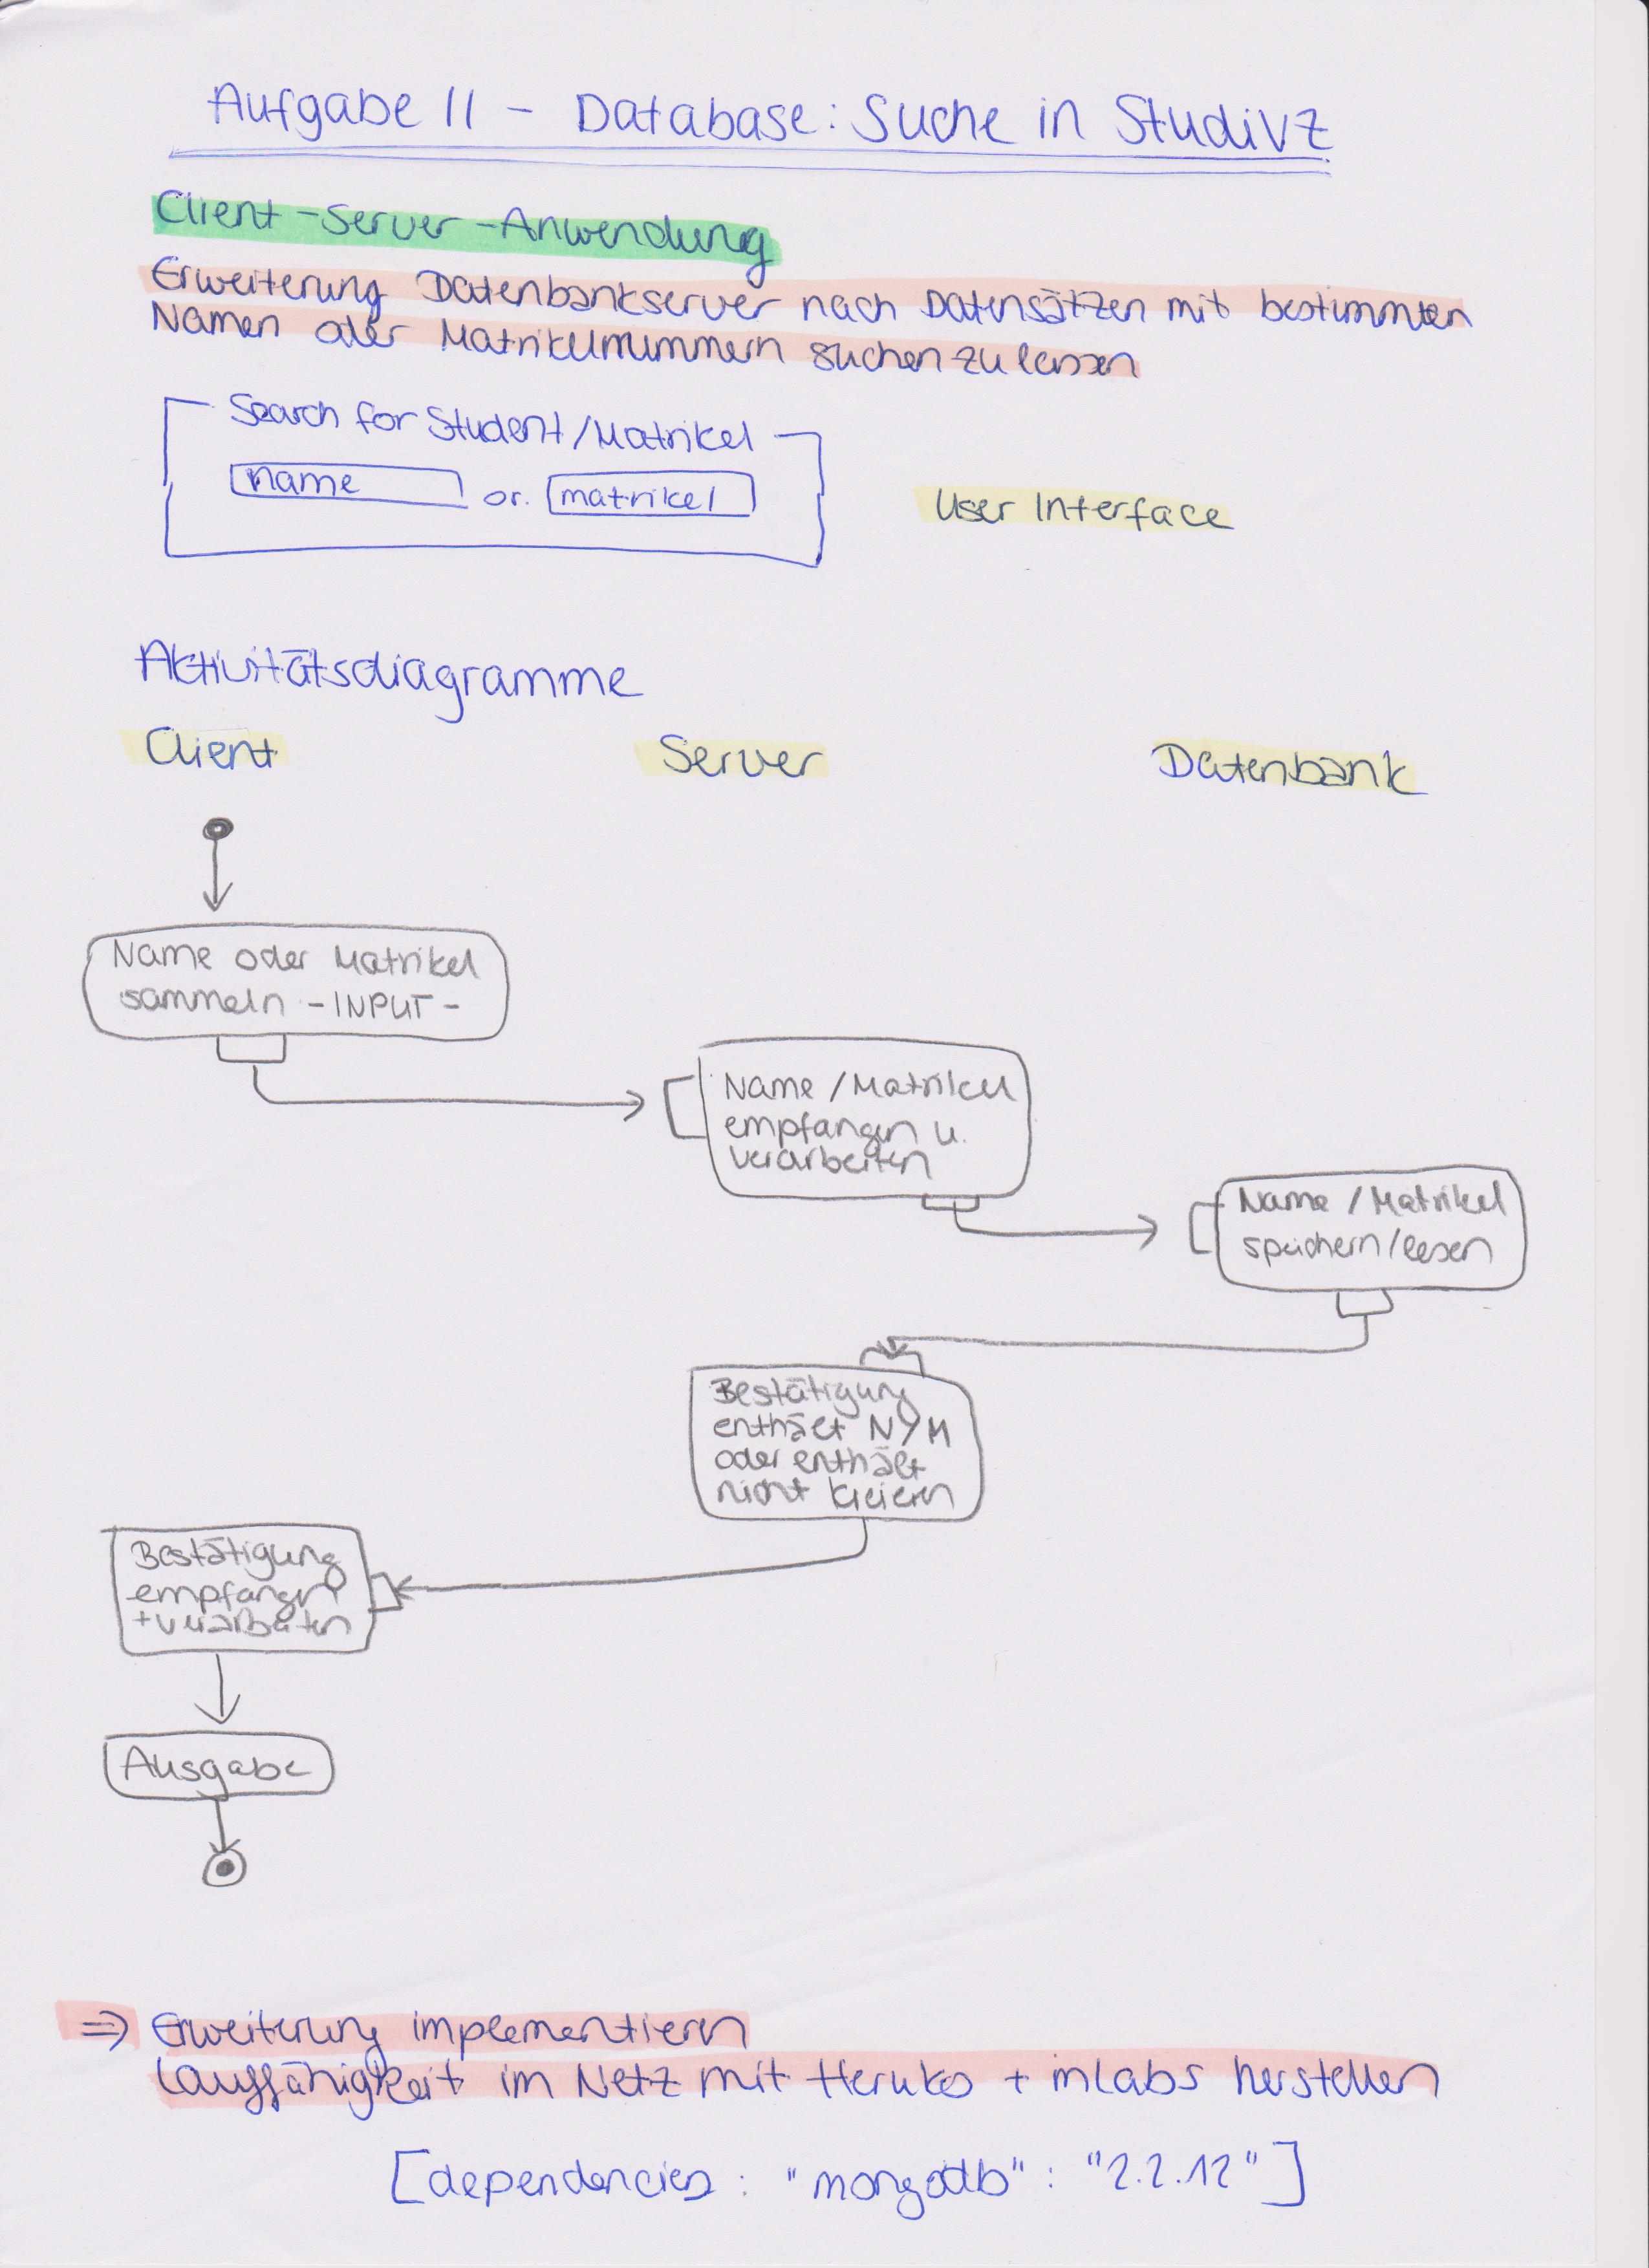 Aufgabe 11 - Database: Suche in StudiVZ
Client-Server-Anwendung
Erweiterung Datenbankserver nach Datensätzen mit bestimmten
Namen oder Matrikelnummern suchen zu lassen
Search for Student/Matrikel
name or. matrikel
User Interface
Aktivitätsdiagramme
Client Server Datenbank
Name oder Matrikel
sammeln -INPUT-
Name/Matrikel
empfangen u.
verarbeiten
Name/Matrikel
speichern/lesen
Bestätigung
enthält N/M
oder enthält
nicht kreieren
Bestätigung
empfangen
+verarbeiten
Ausgabe
⇒ Erweiterung implementieren
Lauffähigkeit im Netz mit Heruko + mLabs herstellen
[dependencies: "mongodb": "2.2.12"]